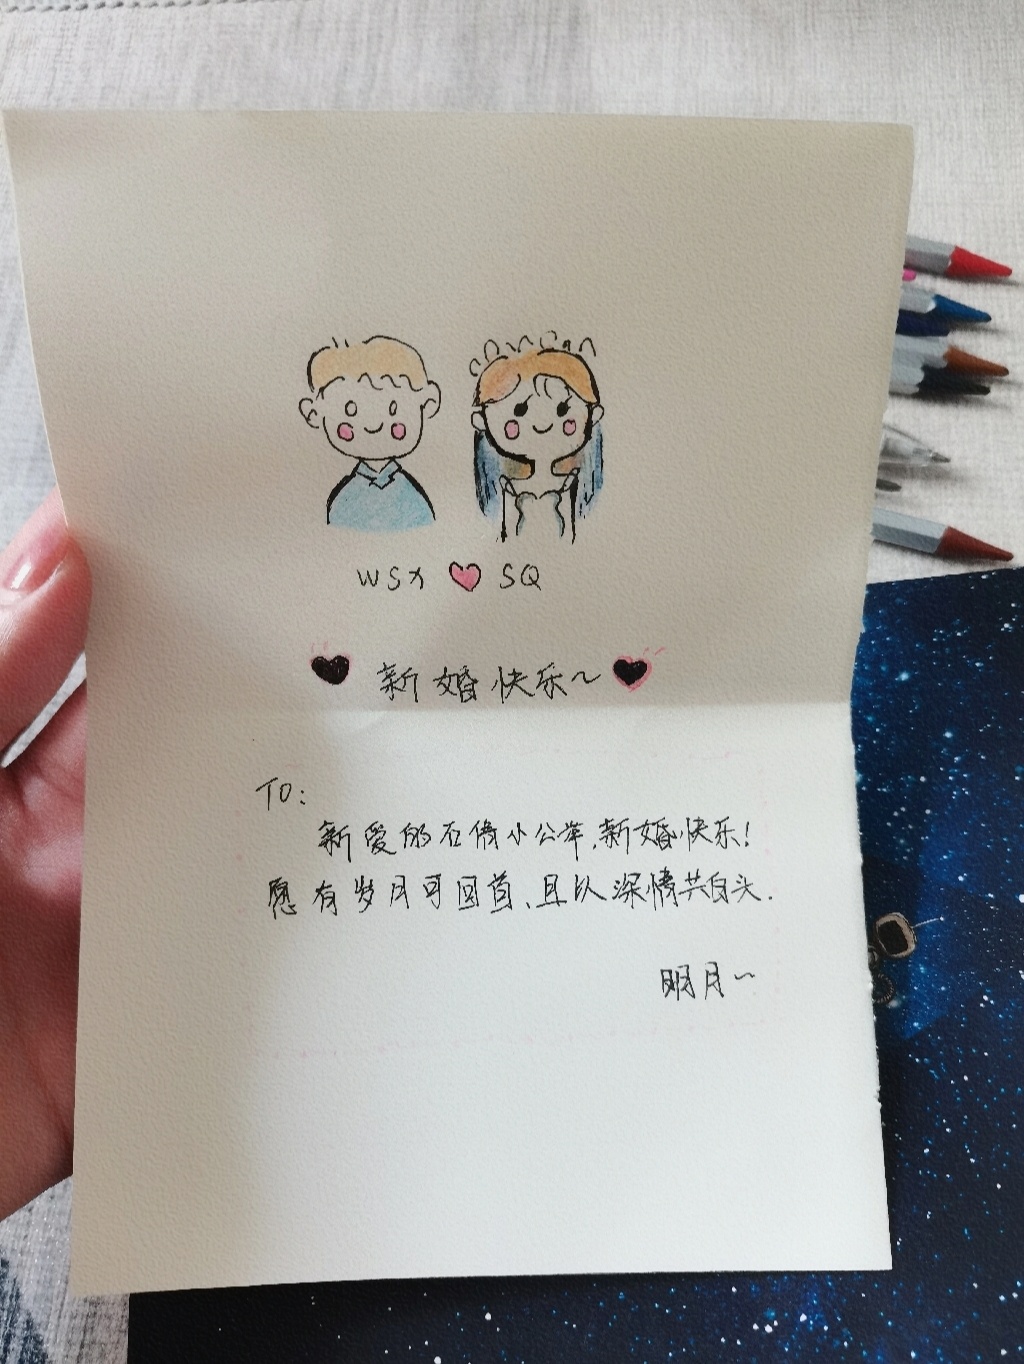 WSX SQ
新婚快乐~
TO:
新爱的石倩小公举,新婚快乐!
愿有岁月可回首,且以深情共白头.
明月~